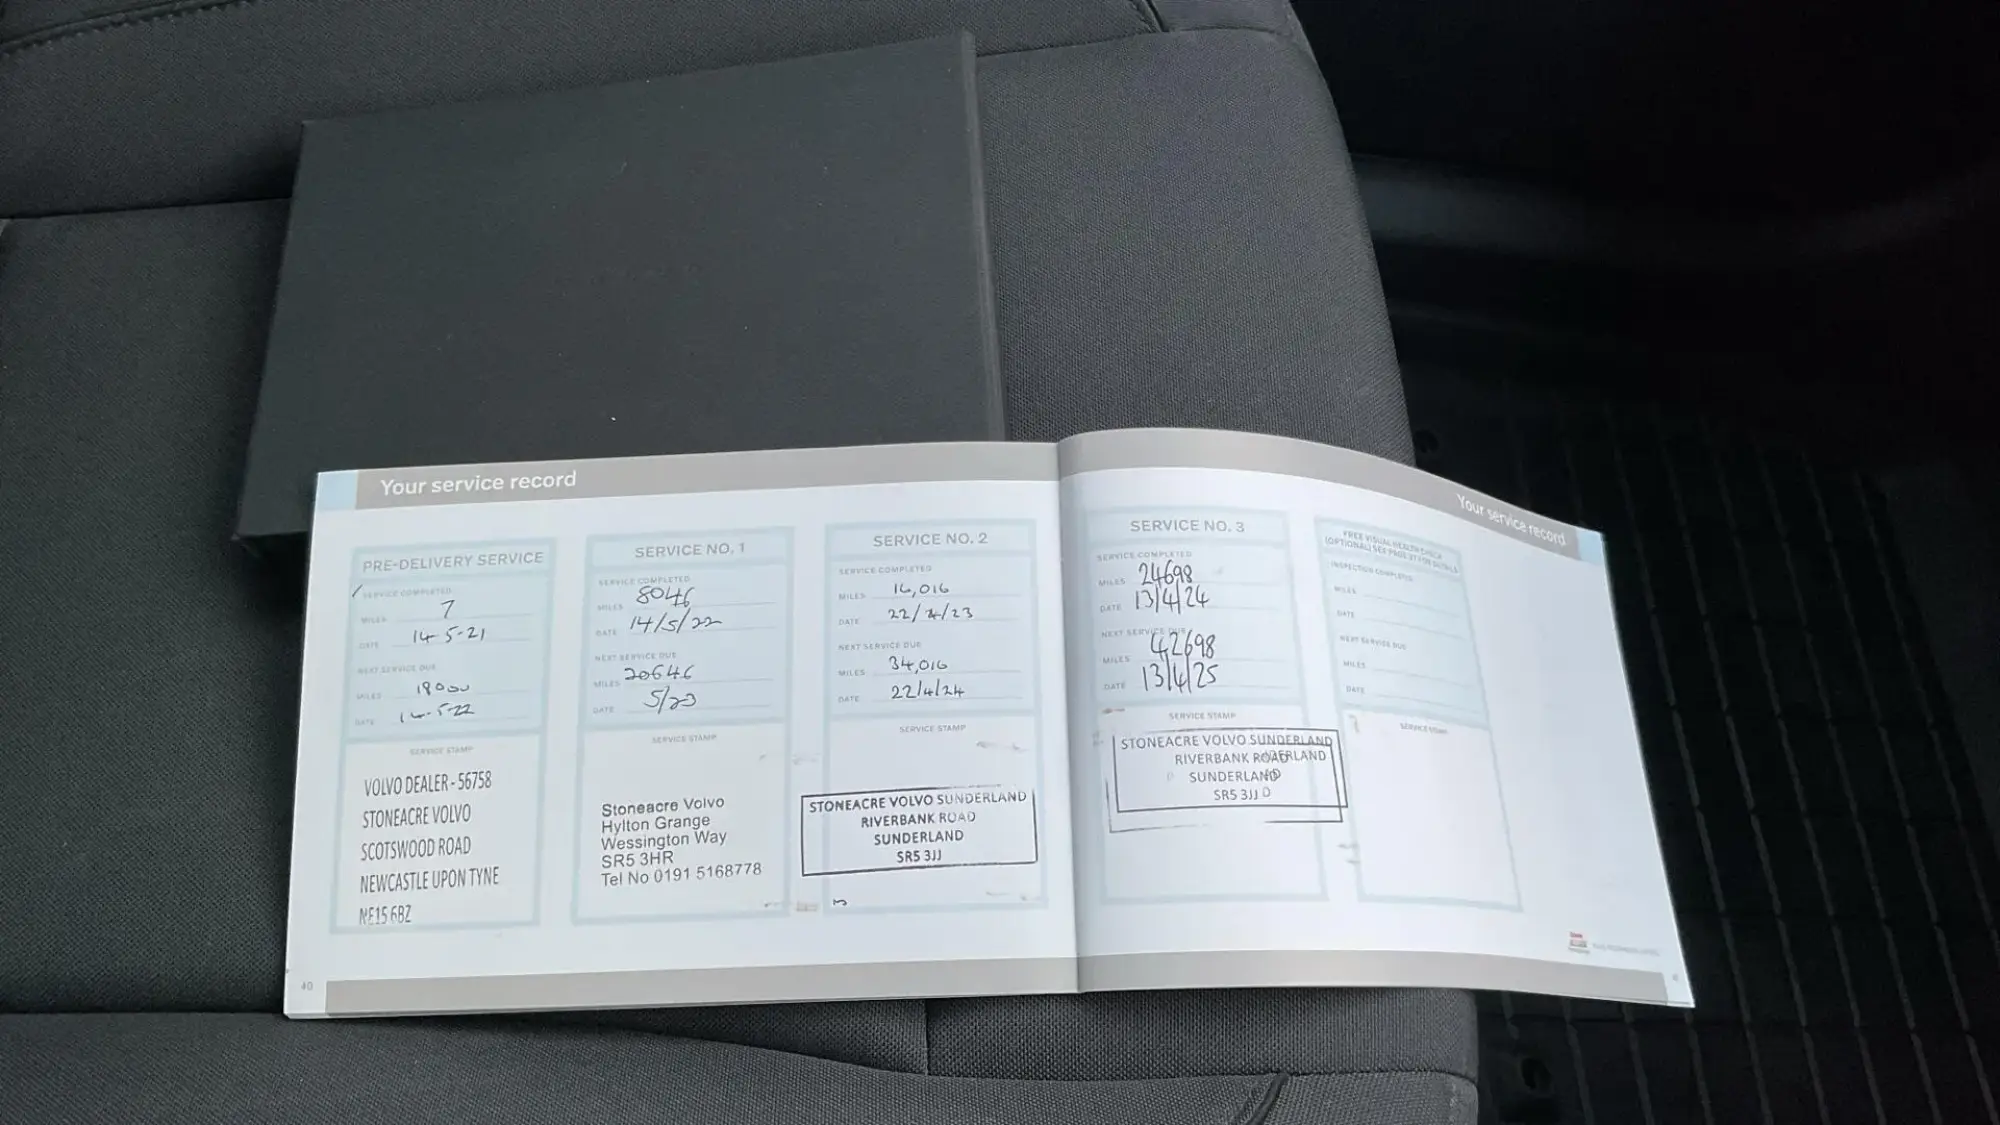 Your service record
PRE-DELIVERY SERVICE
SERVICE COMPLETED
MILES 7
DATE 14-5-21
NEXT SERVICE DUE
MILES 18000
DATE 14-5-22
SERVICE STAMP
VOLVO DEALER - 56758
STONEACRE VOLVO
SCOTSWOOD ROAD
NEWCASTLE UPON TYNE
NE15 6BZ
SERVICE NO. 1
SERVICE COMPLETED
MILES 8046
DATE 14/5/22
NEXT SERVICE DUE
MILES 20646
DATE 5/23
SERVICE STAMP
Stoneacre Volvo
Hylton Grange
Wessington Way
SR5 3HR
Tel No 0191 5168778
SERVICE NO. 2
SERVICE COMPLETED
MILES 16,016
DATE 22/4/23
NEXT SERVICE DUE
MILES 34,016
DATE 22/4/24
SERVICE STAMP
STONEACRE VOLVO SUNDERLAND
RIVERBANK ROAD
SUNDERLAND
SR5 3JJ
40
Your service record
SERVICE NO. 3
SERVICE COMPLETED
MILES 24698
DATE 13/4/24
NEXT SERVICE DUE
MILES 42698
DATE 13/4/25
SERVICE STAMP
STONEACRE VOLVO SUNDERLAND
RIVERBANK ROAD
SUNDERLAND
SR5 3JJ
FREE VISUAL HEALTH CHECK
(OPTIONAL) SEE PAGE 37 FOR DETAILS
INSPECTION COMPLETED
MILES
DATE
NEXT SERVICE DUE
MILES
DATE
SERVICE STAMP